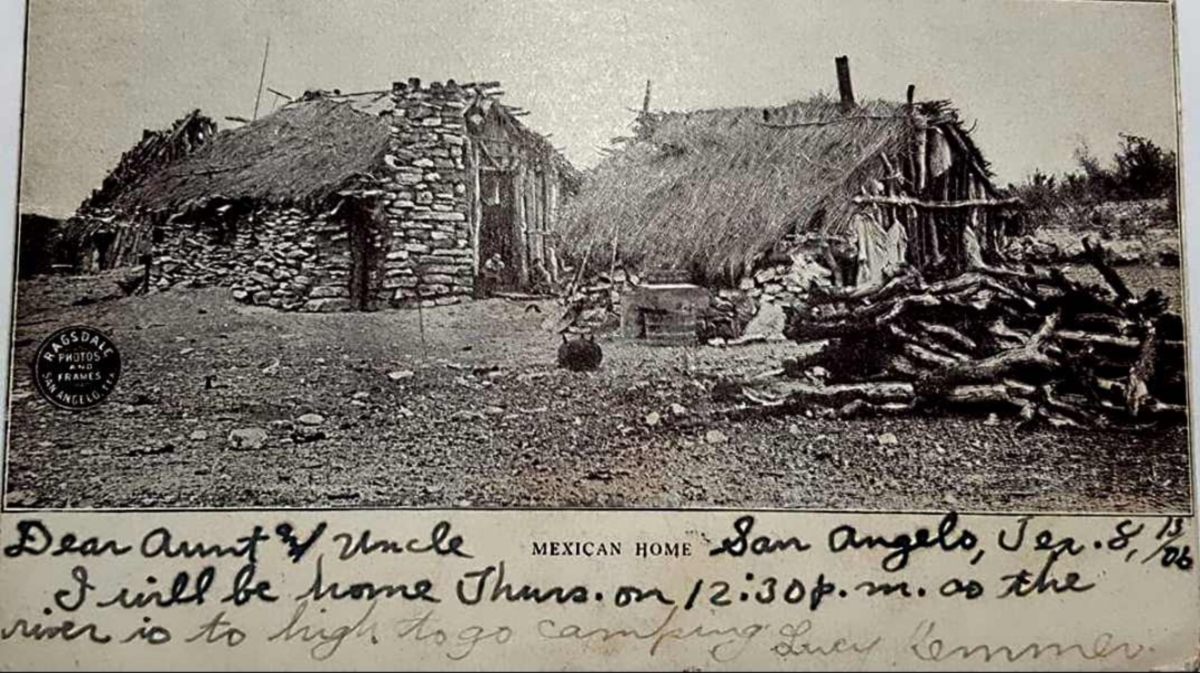 RAGSDALE
PHOTOS
AND
FRAMES
SAN ANGELO, TEX.
Dear Aunt & Uncle
MEXICAN HOME
San Angelo, Tex. 8, 13/06
I will be home Thurs. on 12:30 p.m. as the
river is to high to go camping Lucy Kemmer.